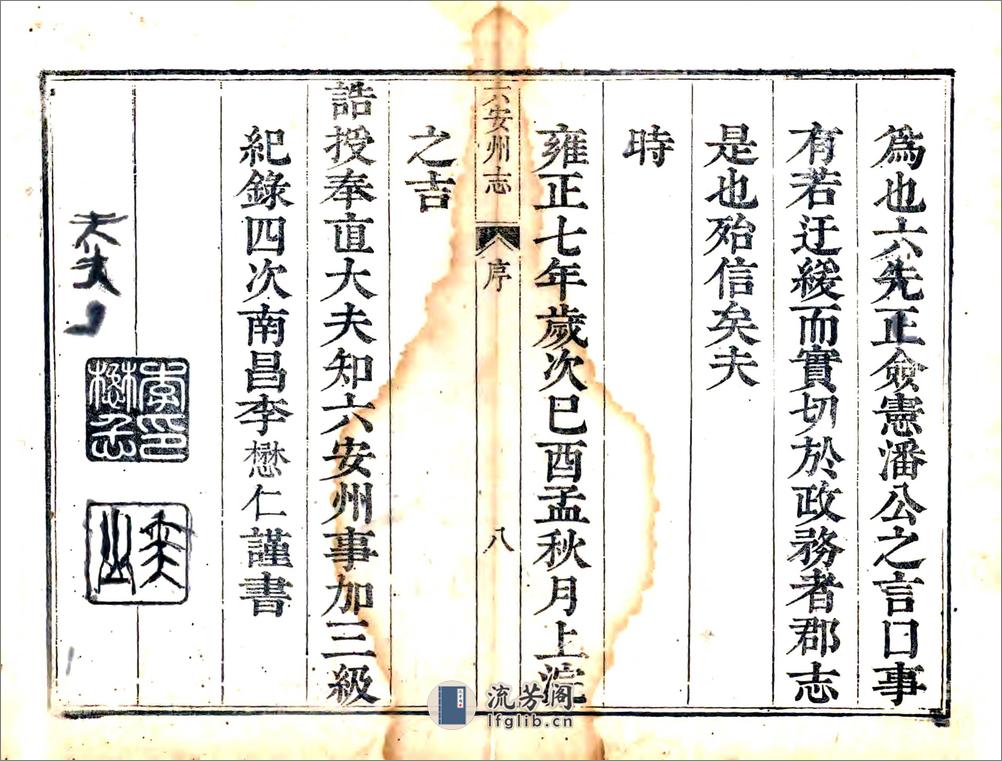 爲也六先正僉憲潘公之言曰事
有若迂緩而實切於政務者郡志
是也殆信矣夫
時
雍正七年歲次巳酉孟秋月上浣
六安州志
序
八
之吉
誥授奉直大夫知六安州事加三級
紀錄四次南昌李懋仁謹書
流芳阁
lfglib.cn